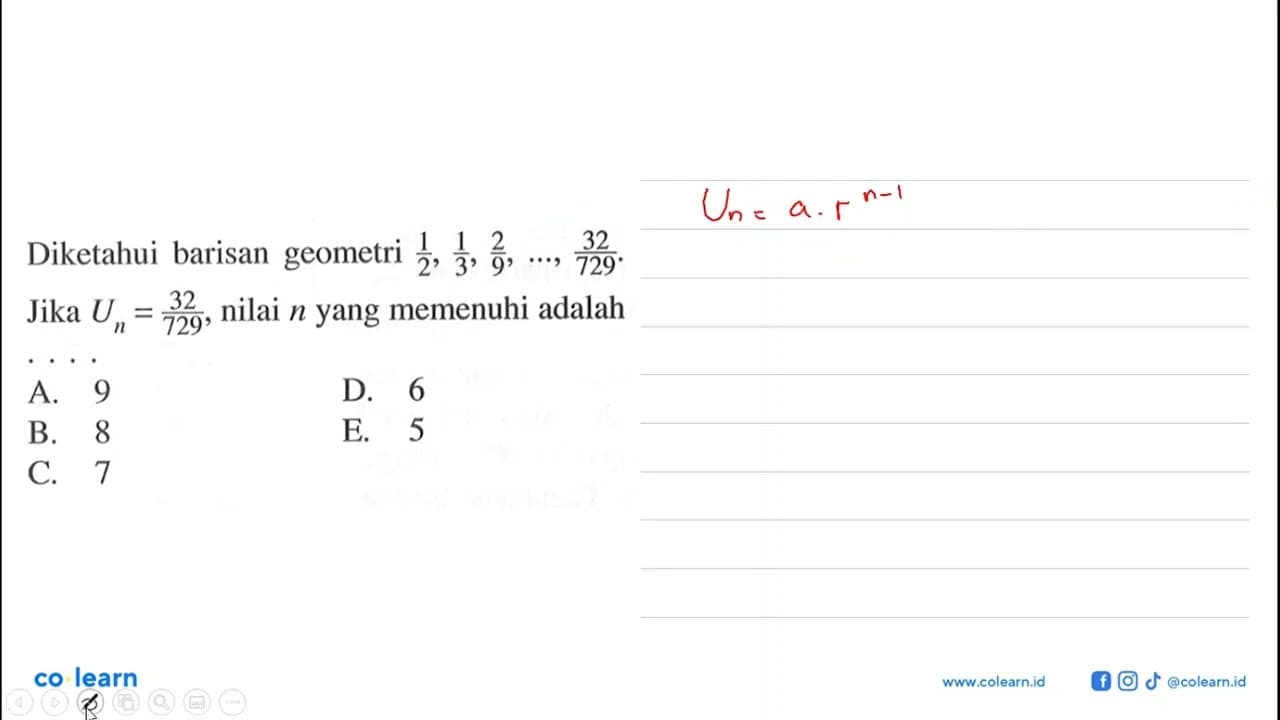 Diketahui barisan geometri 1/2, 1/3, 2/9, ..., 32/729.
Jika Uₙ = 32/729, nilai n yang memenuhi adalah
. . . .
A. 9
B. 8
C. 7
D. 6
E. 5
Uₙ = a . r^(n-1)
co learn
www.colearn.id
@colearn.id